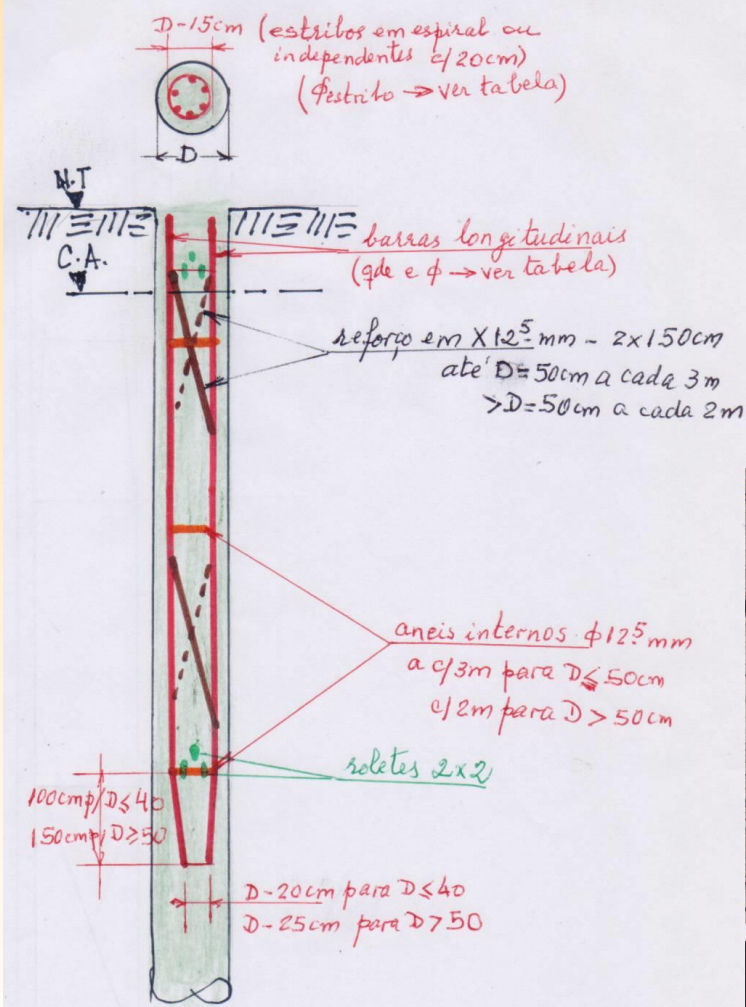 D-15cm (estribos em espiral ou
independentes c/20cm)
(ϕestribo → ver tabela)
D
N.T
C.A.
barras longitudinais
(qde e ϕ → ver tabela)
reforço em X 12⁵ mm - 2x150cm
até D=50cm a cada 3m
>D=50cm a cada 2m
aneis internos ϕ12⁵ mm
a c/3m para D≤50cm
c/2m para D>50cm
roletes 2x2
100cm p/D≤40
150cm p/D≥50
D-20cm para D≤40
D-25cm para D>50